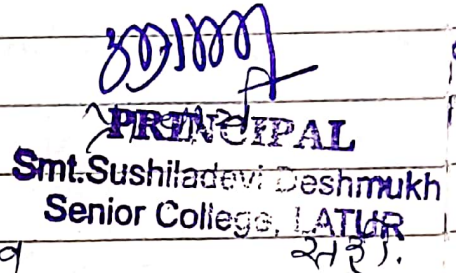 PRINCIPAL
Smt.Sushiladevi Deshmukh
Senior College, LATUR
व सही.